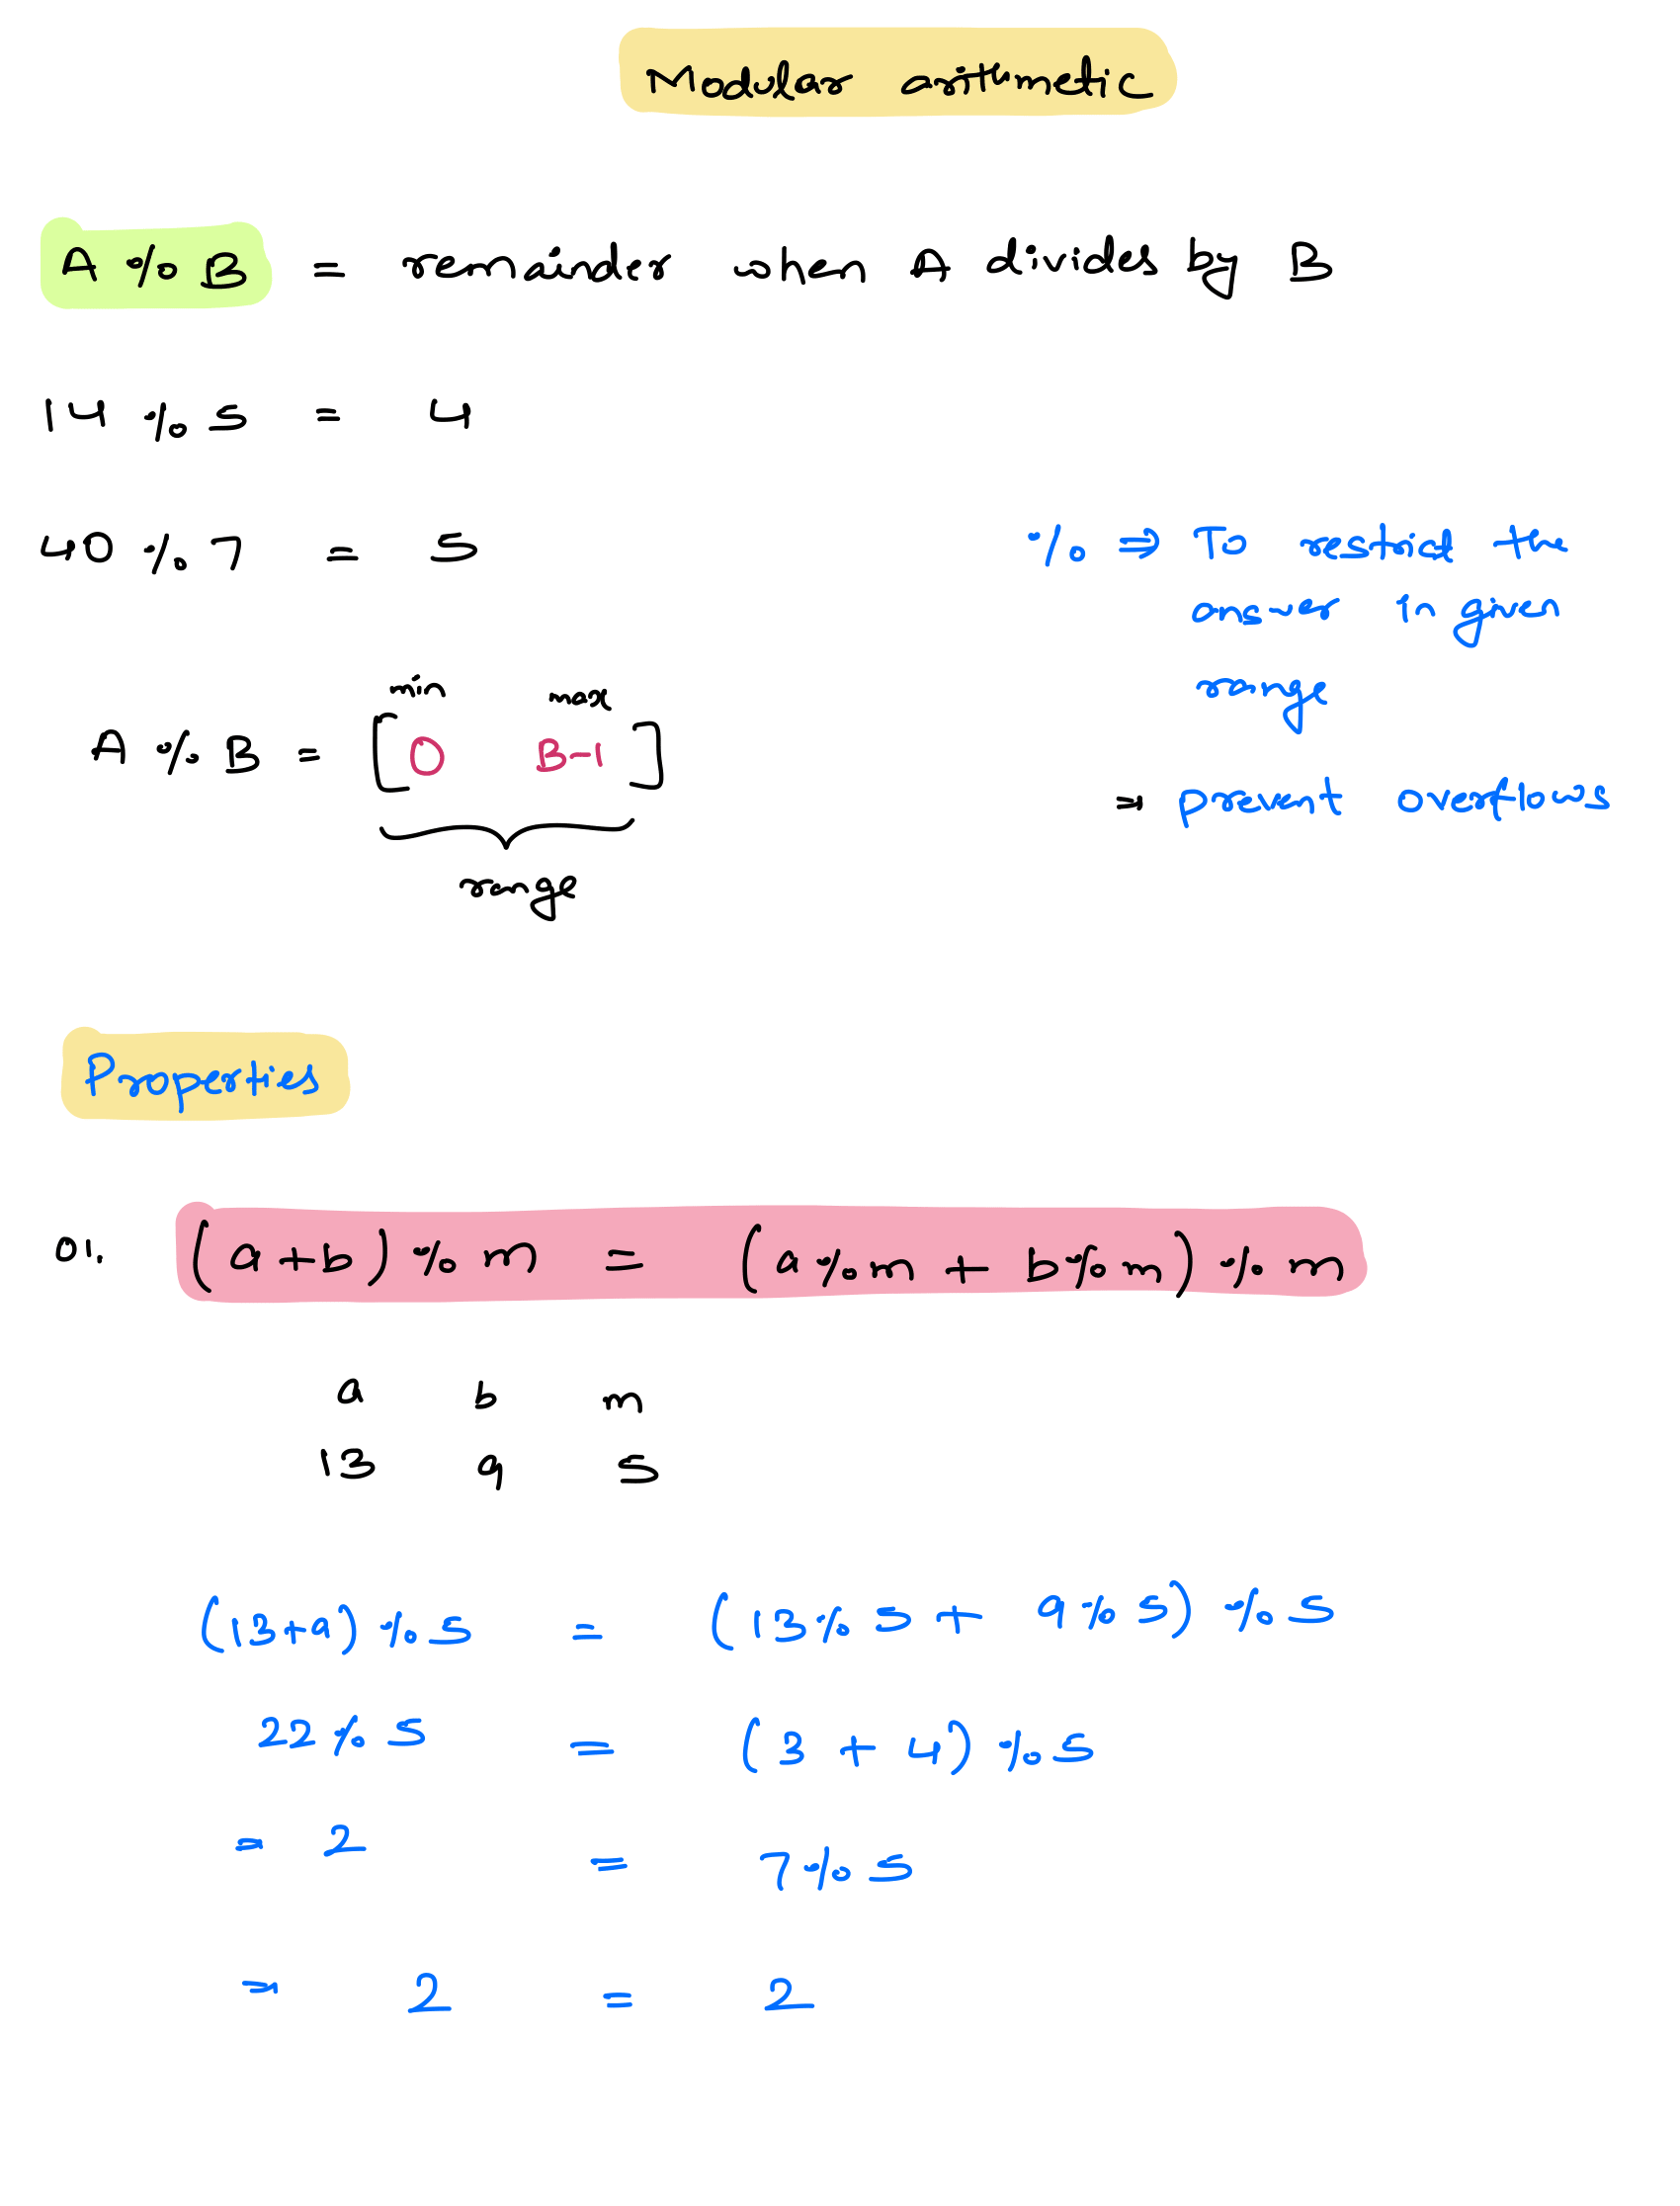 Modular arithmetic
A % B = remainder when A divides by B
14 % 5 = 4
40 % 7 = 5
% ⇒ To restrict the
answer in given
range
⇒ prevent overflows
min max
A % B = [0 B-1]
range
Properties
01. (a+b) % m = (a%m + b%m) % m
a b m
13 9 5
(13+9) % 5 = (13% 5 + 9% 5) % 5
22% 5 = (3 + 4) % 5
= 2 = 7%5
= 2 = 2